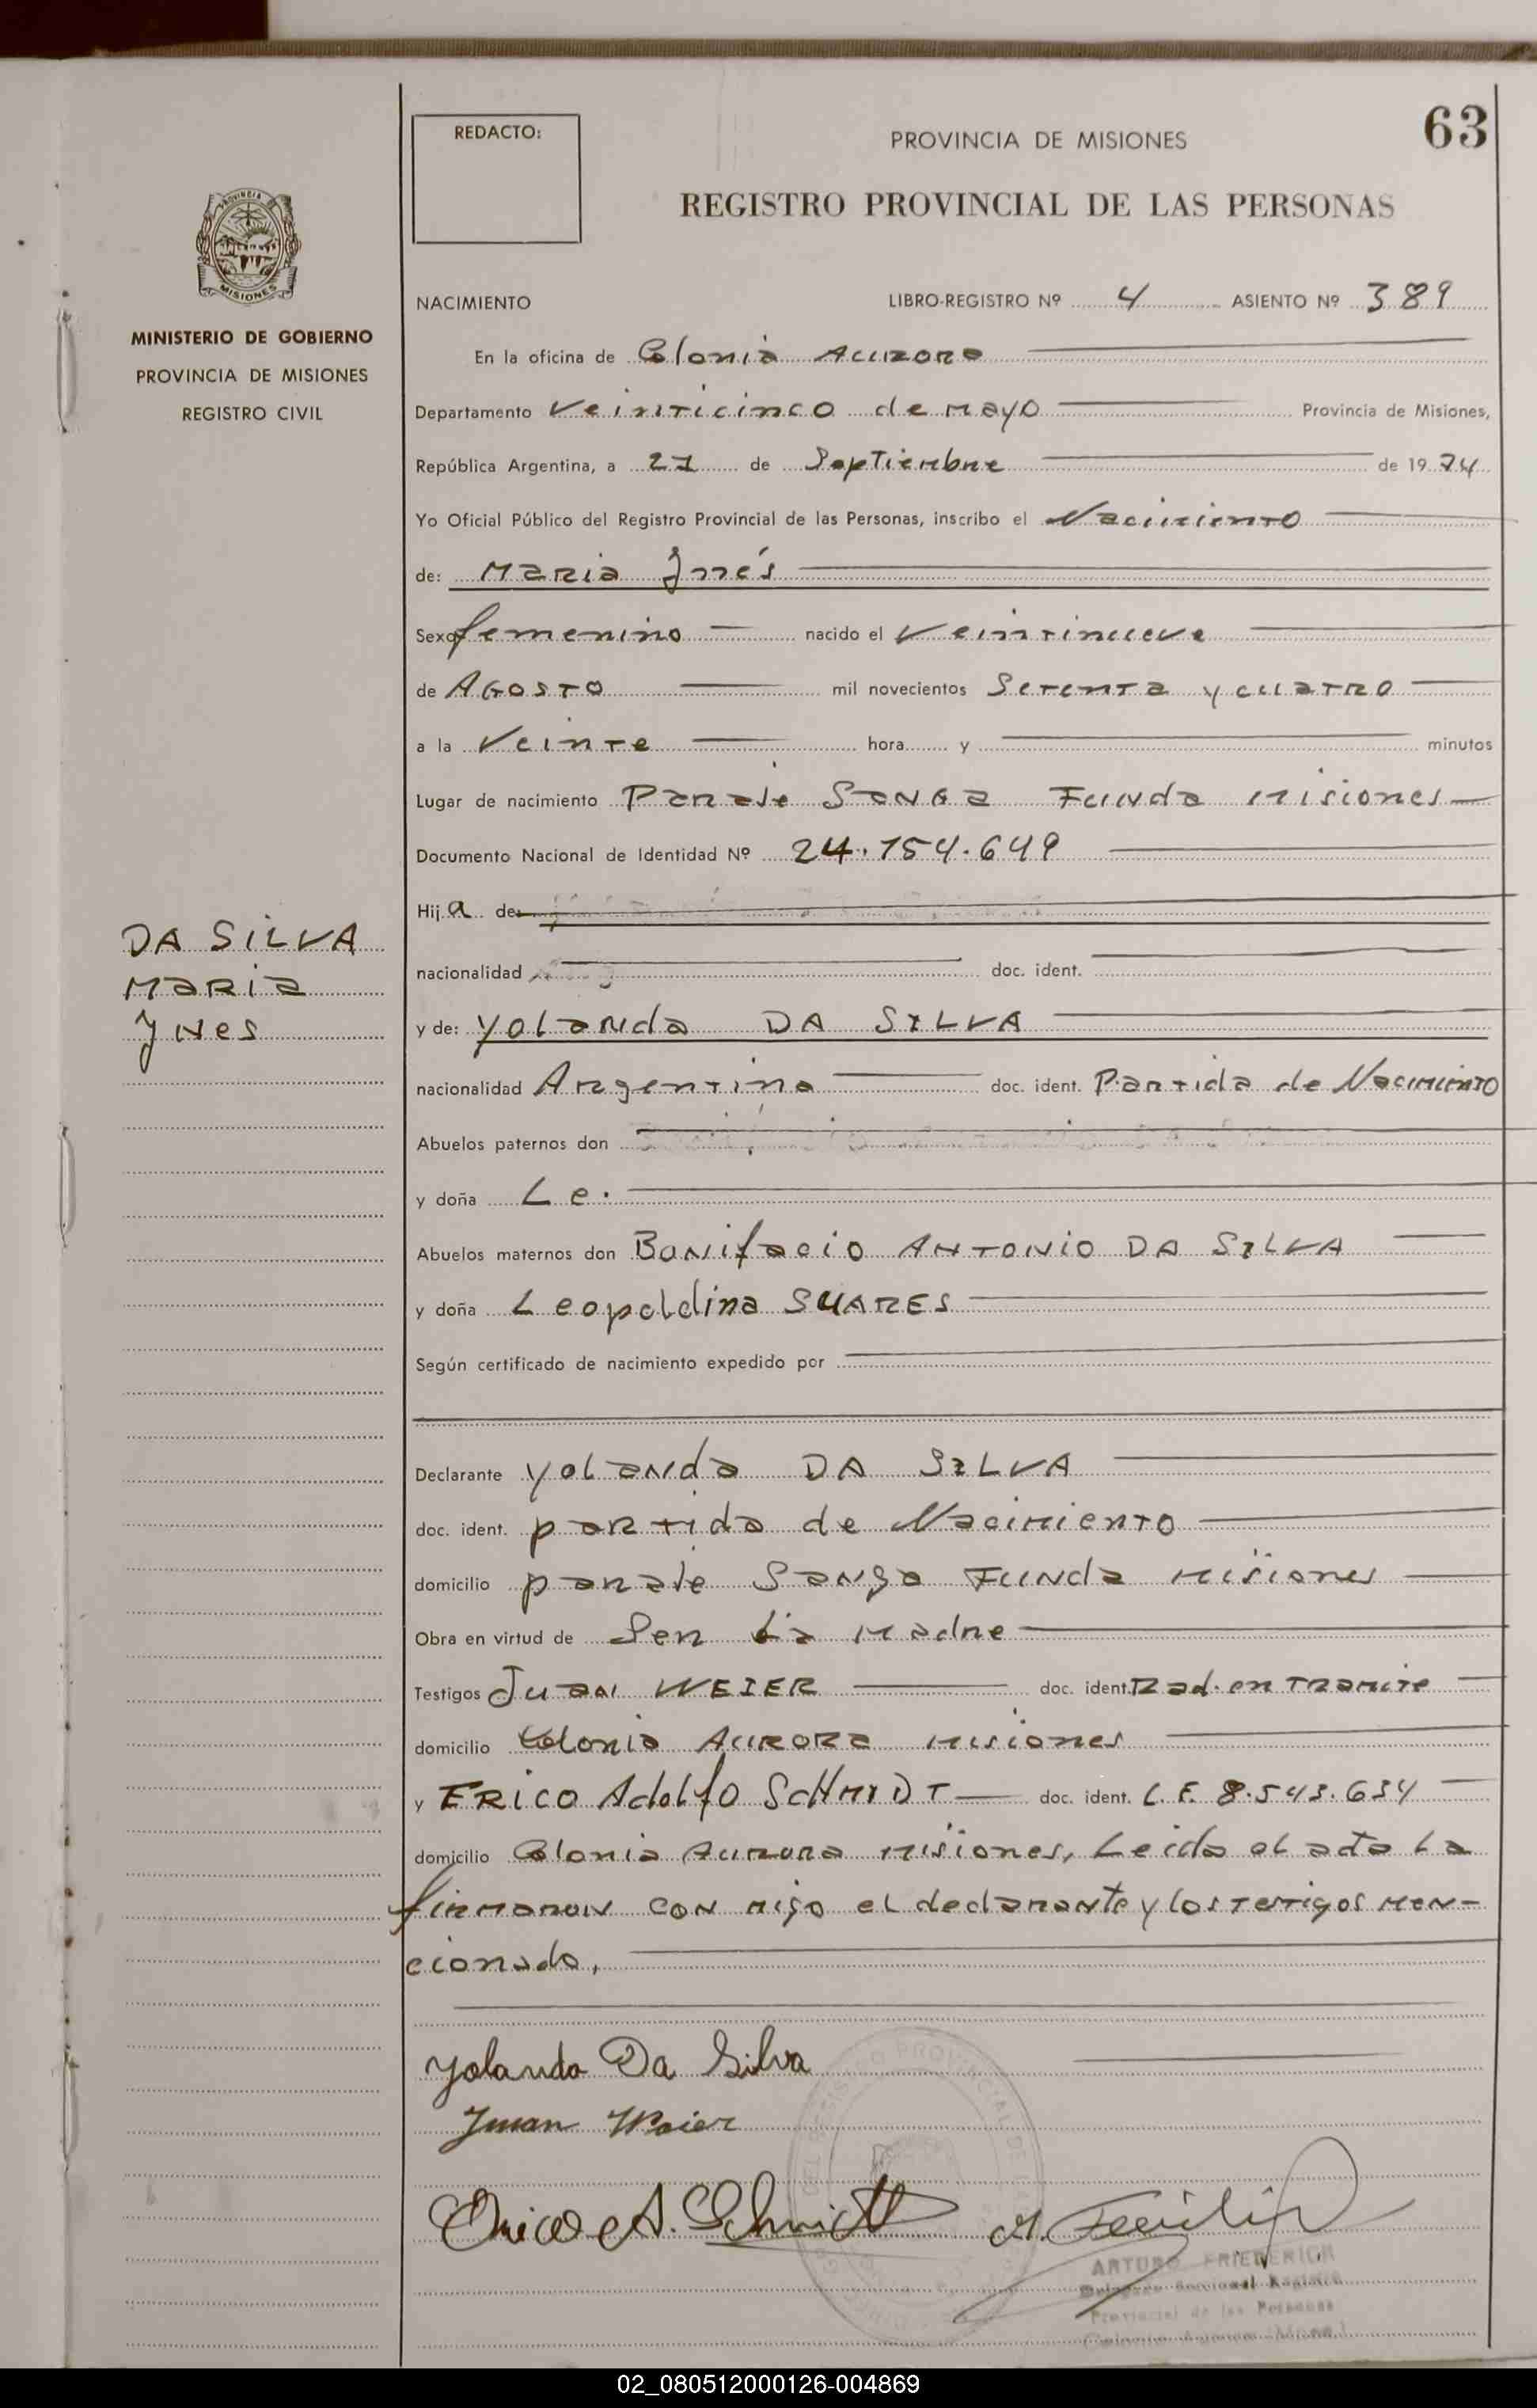 63
REDACTO:
PROVINCIA DE MISIONES
REGISTRO PROVINCIAL DE LAS PERSONAS
PROVINCIA
MISIONES
MINISTERIO DE GOBIERNO
PROVINCIA DE MISIONES
REGISTRO CIVIL
DA SILVA
MARIA
YNES
NACIMIENTO LIBRO-REGISTRO Nº 4 ASIENTO Nº 389
En la oficina de Colonia Aurora
Departamento Veinticinco de mayo Provincia de Misiones,
República Argentina, a 27 de Septiembre de 1974
Yo Oficial Público del Registro Provincial de las Personas, inscribo el Nacimiento
de: MARIA Ynés
Sexo femenino nacido el Veintinueve
de AGOSTO mil novecientos Setenta y cuatro
a la Veinte hora y minutos
Lugar de nacimiento Paraje SANGA Funda Misiones
Documento Nacional de Identidad Nº 24.154.649
Hija de:
nacionalidad doc. ident.
y de: Yolanda DA SILVA
nacionalidad Argentina doc. ident. Partida de Nacimiento
Abuelos paternos don
y doña Le.
Abuelos maternos don Bonifacio ANTONIO DA SILVA
y doña Leopoldina SUARES
Según certificado de nacimiento expedido por
Declarante Yolanda DA SILVA
doc. ident. partida de Nacimiento
domicilio paraje Sanga Funda Misiones
Obra en virtud de Ser La Madre
Testigos Juan WEIER doc. ident. Rad. en Tramite
domicilio Colonia AURORA Misiones
y ERICO Adolfo SCHMIDT doc. ident. L.E. 8.543.634
domicilio Colonia Aurora Misiones, Leida el acta La
firmaron con migo el declarante y los testigos men-
cionado,
Yolanda Da Silva
Juan Weier
Erico A. Schmidt
ARTURO FRIEDERICH
Delegado Seccional Registro
Provincial de las Personas
Colonia Aurora (Mnes.)
02_080512000126-004869